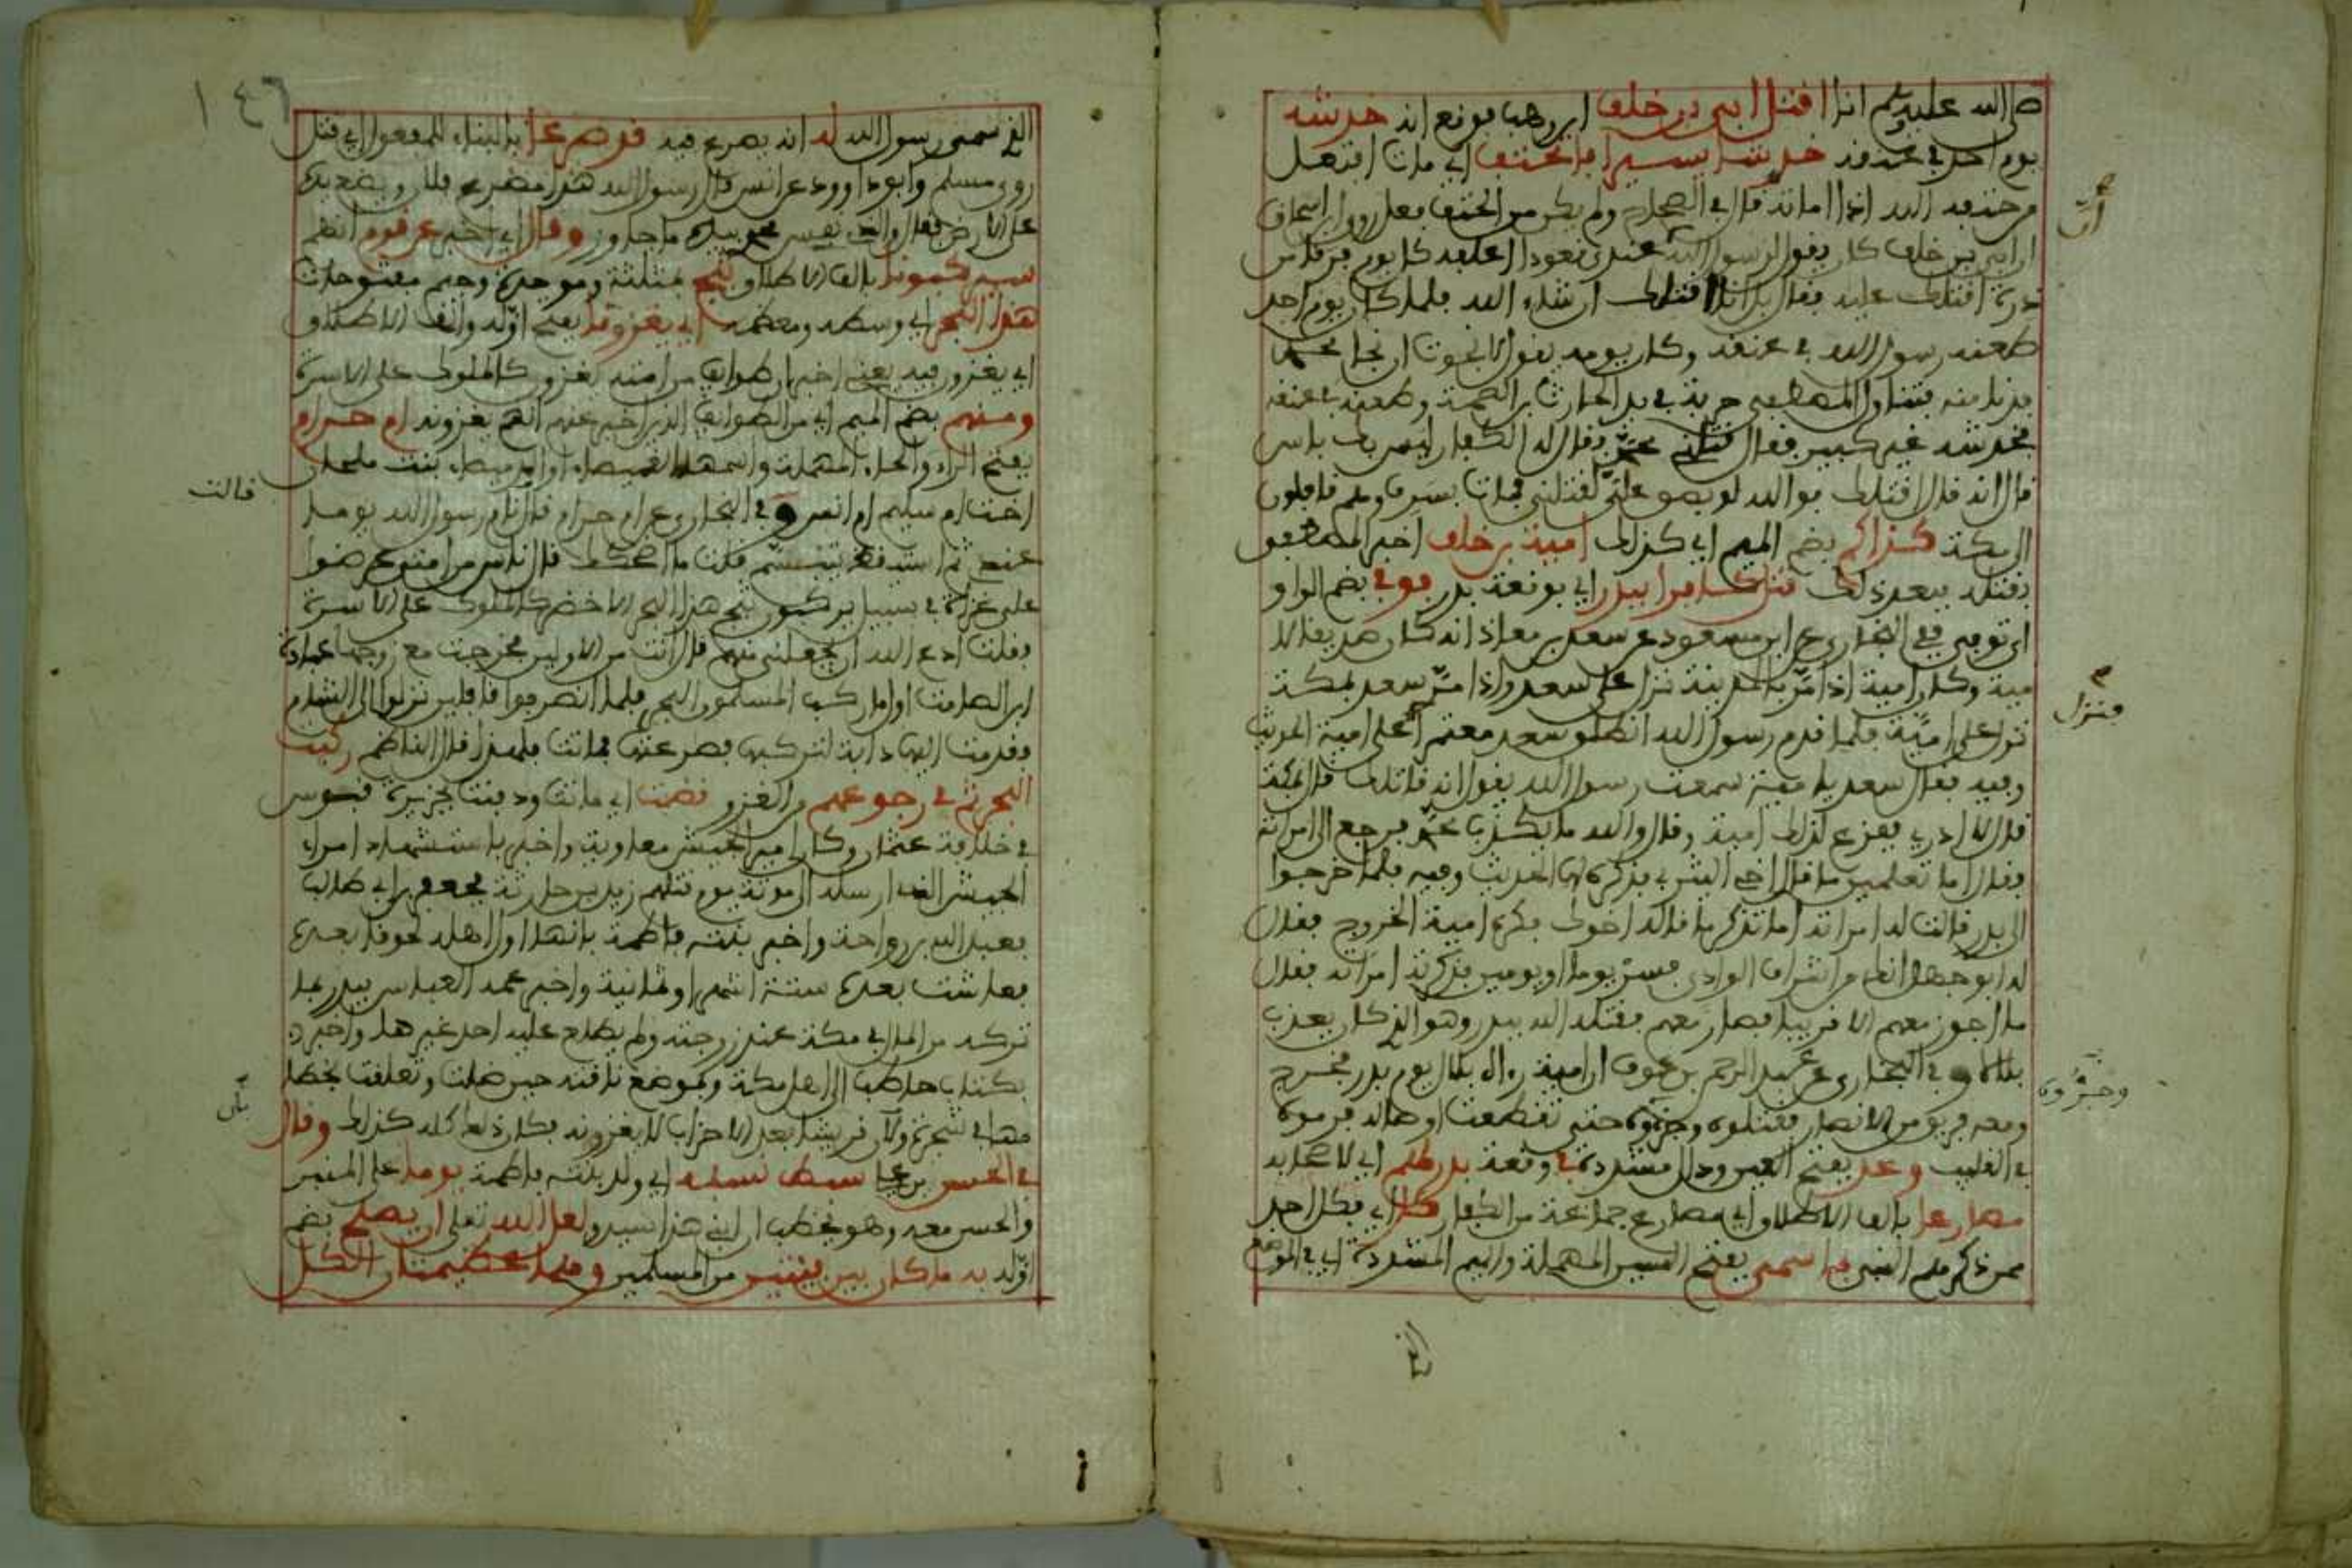 صلى الله عليه وسلم انا اقتل ابي بن خلف اي وهب فوقع انه خدشه
يوم احد في عنقه خدشا يسيرا فاختنف اي مات افتعل
من حنفه الله اذا اماته قال في الصحاح ولم يكن من الحنف فعل روى ابن اسحاق
ان ابي بن خلف كان يقول لرسول الله عندي فعودا اعلفه كل يوم فرقا من
ذرة اقتلك عليه فقال بل انا اقتلك ان شاء الله فلما كان يوم احد
طعنه رسول الله في عنقه وكان يومه يقول لا نجوت ان نجا محمد
فدنا منه فتناول المصطفى حربة في يد الحارث بن الصمة وطعنه في عنقه
فخدشه غير كبير فقال قتلني محمد فقال له الكفار ليس بك باس
قال انه قال اقتلك فوالله لو بصق علي لقتلني فمات بسرف وهم قافلون
الى مكة كذاكم بضم الميم اي كذلك امية بن خلف اخبر المصطفى
بقتله فبعد ذلك قتل كافرا ببدر اي بوقعة بدر فوفي بضم الواو
اي توفي ففي البخاري عن ابن مسعود عن سعد بن معاذ انه كان صديقا لا
مية وكان امية اذا مر بالمدينة نزل على سعد واذا مر سعد بمكة
نزل على امية فلما قدم رسول الله انطلق سعد معتمرا على امية الحديث
وفيه فقال سعد يا امية سمعت رسول الله يقول انه قاتلك قال بمكة
قال لا ادري ففزع لذلك امية وقال والله ما يكذب محمد فرجع الى امراته
فقال اما تعلمين ما قال اخي اليثربي فذكره لها الحديث وفيه فلما خرجوا
الى بدر قالت له امراته اما تذكر ما قال له اخوك فكره امية الخروج فقال
له ابو جهل انك من اشراف الوادي فسر يوما او يومين فذكرته امراته فقال
ما اجوز معهم الا قريبا فصار معهم فقتله الله ببدر وهو الذي كان يعذب
بلالا وفي البخاري عن عبد الرحمن بن عوف ان امية راه بلال يوم بدر فخرج
ومعه فريق من الانصار فقتلوه وجروه حتى تقطعت اوصاله فرموه
في القليب وعد بفتح العين ودال مشددة في وقعة بدر لهم اي لاصحابه
مصارعا بالف الاطلاق اي مصارع جماعة من الكفار كل اي فكل احد
ممن ذكرهم النبي بما سمى بفتح السين المهملة والميم المشددة اي في الموضع
الذي
ات
منزل
وجروه
١٤٦
الذي سمى رسول الله له انه يصرع فيه قد صرعا بالبناء للمفعول اي قتل
روى مسلم وابو داوود عن انس قال رسول الله هذا مصرع فلان ويضع يده
على الارض فقال والذي نفسي بيده ما جاوز وقال اي اخبر عن قوم انهم
سيركبونا بالف الاطلاق ثبج بمثلثة وموحدة وجيم مفتوحات
هذا البحر اي وسطه ومعظمه اي يغزونا بفتح اوله والف الاطلاق
اي يغزون فيه يعني اخبر ان طوائف من امته يغزون كالملوك على الاسرة
ومنهم بضم الميم اي من الطوائف الذين اخبر عنهم انهم يغزونه ام حرام
بفتح الراء والحاء المهملة واسمها الغميصاء او الرميصاء بنت ملحان
اخت ام سليم ام انس وفي البخاري عن ام حرام قالت نام رسول الله يوما
عندي ثم استيقظ يتبسم فقلت ما اضحكك قال ناس من امتي عرضوا
علي غزاة في سبيل يركبون ثبج هذا البحر الاخضر كالملوك على الاسرة
فقلت ادع الله ان يجعلني منهم قال انت من الاولين فخرجت مع زوجها عبادة
ابن الصامت اول ما ركب المسلمون البحر فلما انصرفوا قافلين نزلوا الى الشام
فقدمت اليها دابة لتركبها فصرعتها فماتت فلهذا قال الناظم ركبت
البحر ثم في رجوعهم من الغزو قضت اي ماتت ودفنت بجزيرة قبرس
في خلافة عثمان وكان امير الجيش معاوية واخبر باستشهاد امراء
الجيش الذي ارسله الى مؤتة يوم قتلهم زيد بن حارثة فجعفر بن ابي طالب
فعبد الله بن رواحة واخبر بنته فاطمة بانها اول اهله لحوقا بعده
فعاشت بعده ستة اشهر او ثمانية واخبر عمه العباس ببدر بما
تركه من المال في مكة عند زوجته ولم يطلع عليه احد غيرها واخبر
بكتاب حاطب الى اهل مكة وبموضع ناقته حين ضلت وتعلقت بخطا
مها في شجرة ولان قريشا بعد الاحزاب لا يغزونه فكان ذلك كله كذلك وقال
في الحسن بن علي سبط نسبه اي ولد بنته فاطمة يوما على المنبر
والحسن معه وهو يخطب ان ابني هذا سيد ولعل الله تعالى ان يصلح بضم
اوله به ما كان بين فئتين من المسلمين وهما عظيمتان الكل
قالت
بان